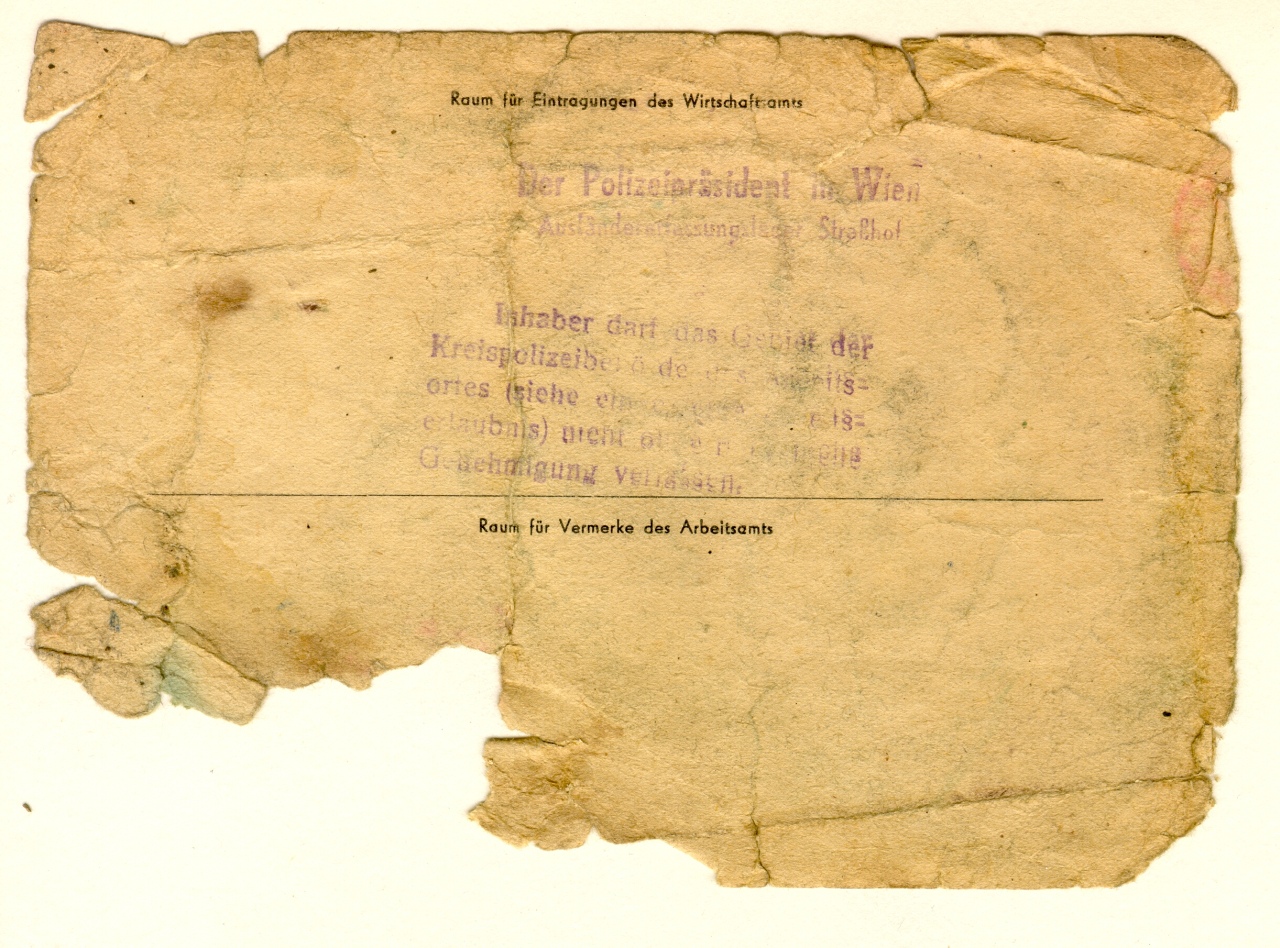 Raum für Eintragungen des Wirtschaftsamts
Der Polizeipräsident in Wien
Ausländererfassungslager Straßhof
Inhaber darf das Gebiet der
Kreispolizeibehörde des Arbeits=
ortes (siehe
erlaubnis) nicht
Genehmigung verlassen.
Raum für Vermerke des Arbeitsamts